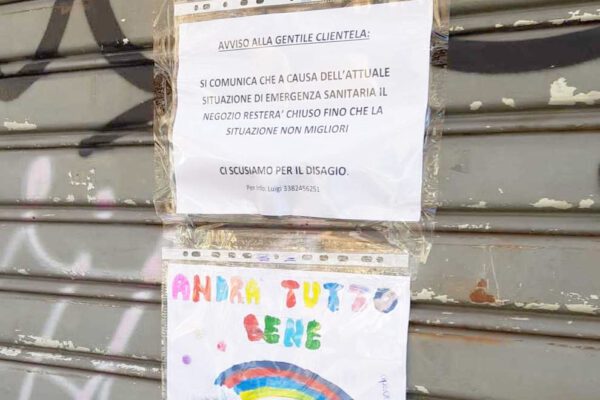 AVVISO ALLA GENTILE CLIENTELA:
SI COMUNICA CHE A CAUSA DELL'ATTUALE
SITUAZIONE DI EMERGENZA SANITARIA IL
NEGOZIO RESTERA' CHIUSO FINO CHE LA
SITUAZIONE NON MIGLIORI
CI SCUSIAMO PER IL DISAGIO.
Per info: Luigi 3382456251
ANDRA TUTTO
BENE